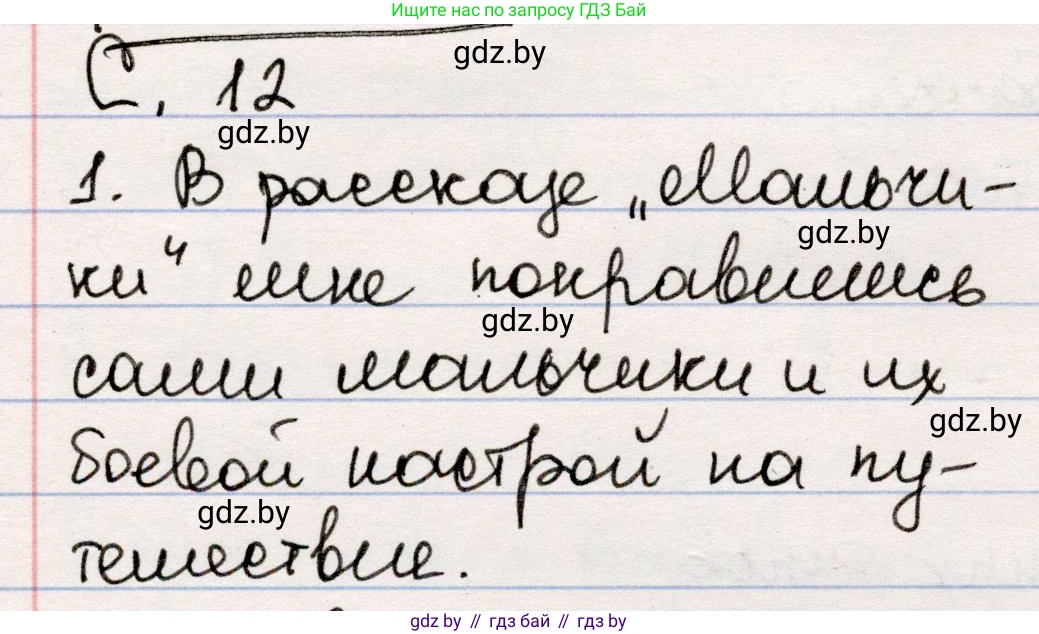 Ищите нас по запросу ГДЗ Бай
С. 12
gdz.by
gdz.by
1. В рассказе „Мальчи-
gdz.by
ки“ мне понравились
gdz.by
сами мальчики и их
gdz.by
боевой настрой на пу-
gdz.by
тешествие.
gdz.by // гдз бай // gdz.by